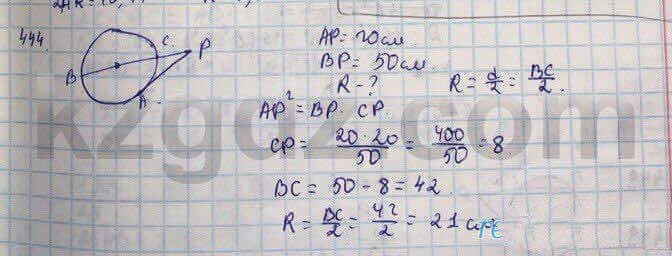 444.
B
C
P
A
AP = 20 см
BP = 50 см
R - ?
R = d/2 = BC/2.
AP² = BP · CP.
CP = 20 · 20/50 = 400/50 = 8
BC = 50 - 8 = 42
R = BC/2 = 42/2 = 21 см
kzgdz.com